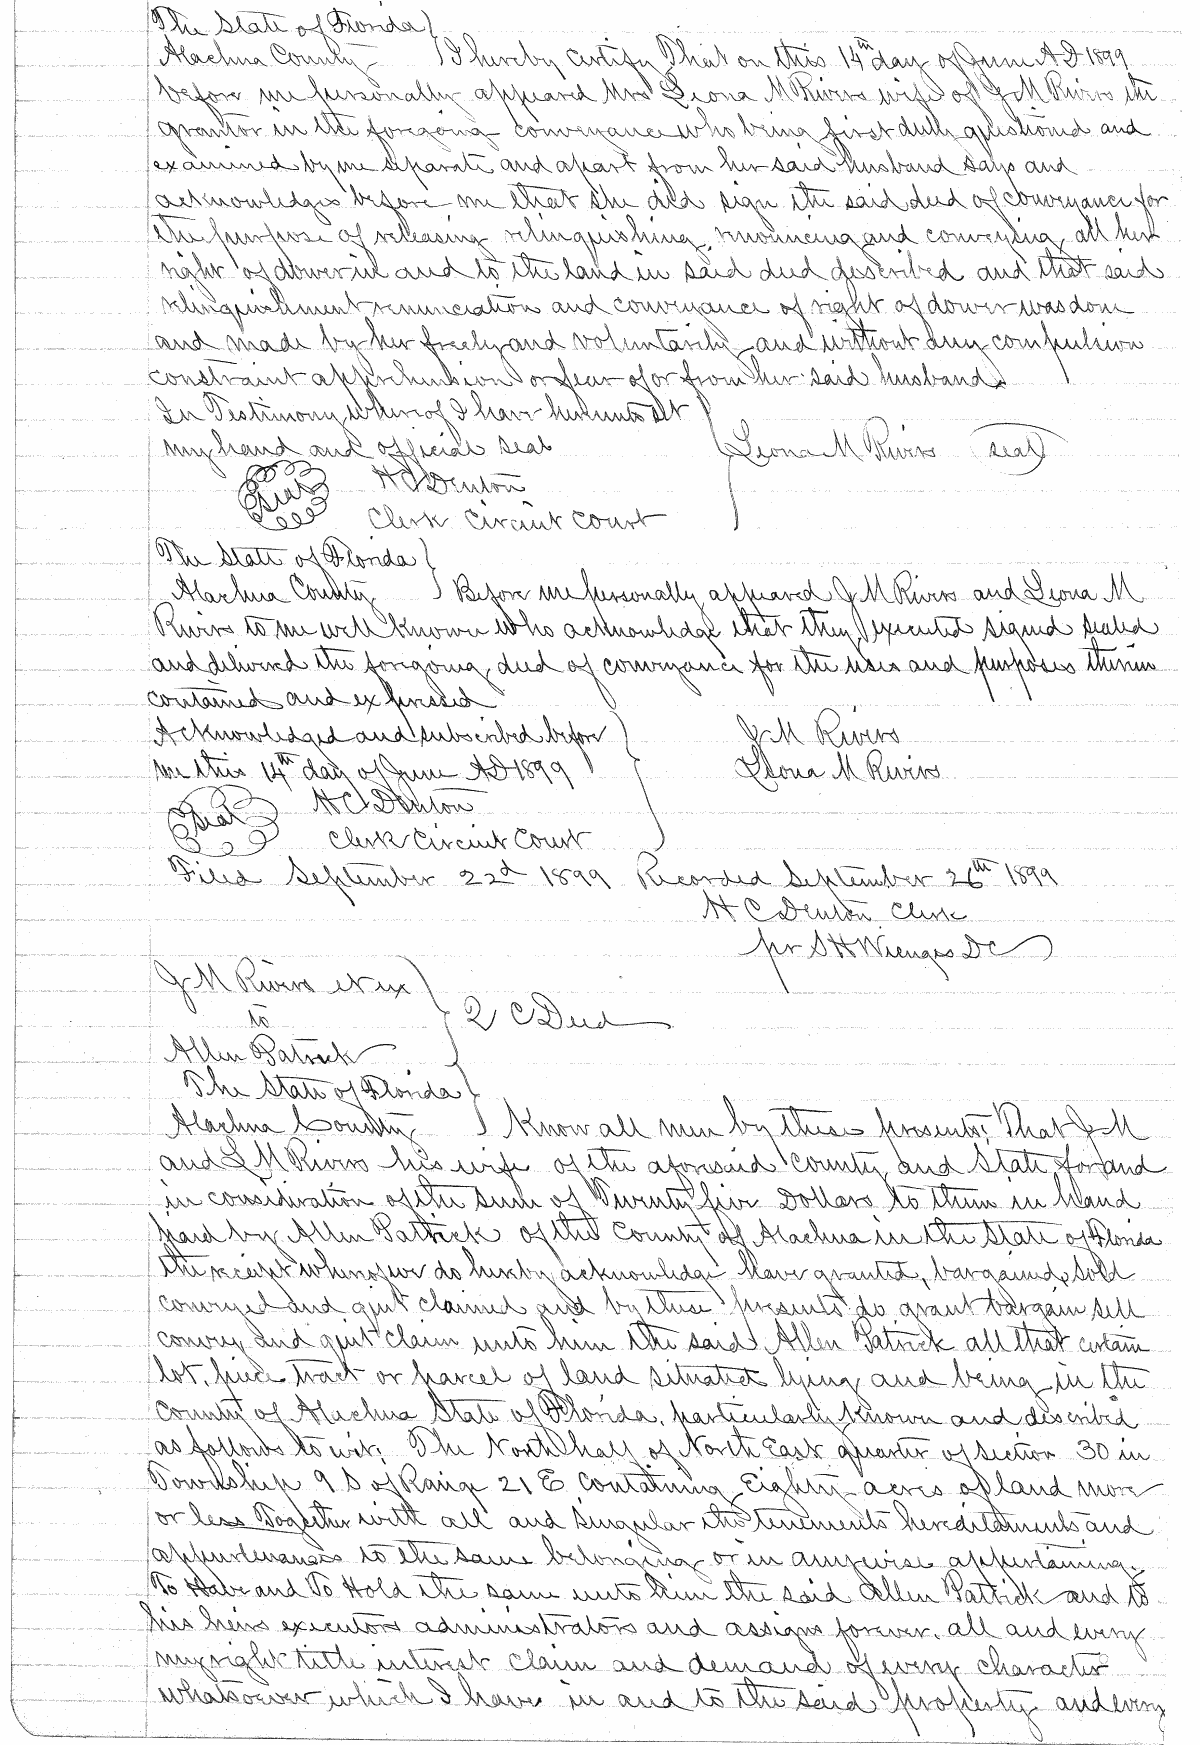 The State of Florida
Alachua County I hereby certify That on this 14th day of June AD 1899
before me personally appeared Mrs Leona M Rivers wife of J M Rivers the
grantor in the foregoing conveyance who being first duly questioned and
examined by me separate and apart from her said husband says and
acknowledges before me that she did sign the said deed of conveyance for
the purpose of releasing relinquishing, renouncing and conveying all her
right of dower in and to the land in said deed described and that said
relinquishment renunciation and conveyance of right of dower was done
and made by her freely and voluntarily and without any compulsion
constraint apprehension or fear of or from her said husband.
In Testimony whereof I have hereunto set
my hand and official seal
Leona M Rivers seal
Seal H C Denton
Clerk Circuit Court
The State of Florida
Alachua County Before me personally appeared J M Rivers and Leona M
Rivers to me well known who acknowledge that they executed signed sealed
and delivered the foregoing deed of conveyance for the uses and purposes therein
contained and expressed
Acknowledged and subscribed before J M Rivers
me this 14th day of June AD 1899 Leona M Rivers
Seal H C Denton
Clerk Circuit Court
Filed September 22d 1899 Recorded September 26th 1899
H C Denton Clerk
pr S H Wienges DC
J M Rivers et ux
to
Q C Deed
Allen Patrick
The State of Florida
Alachua County Know all men by these presents: That J M
and L M Rivers his wife of the aforesaid County and State for and
in consideration of the sum of Twenty five Dollars to them in hand
paid by Allen Patrick of the County of Alachua in the State of Florida
the receipt whereof we do hereby acknowledge have granted, bargained, sold
conveyed and quit claimed and by these presents do grant bargain sell
convey and quit claim unto him the said Allen Patrick all that certain
lot, piece tract or parcel of land situated lying and being in the
County of Alachua State of Florida, particularly known and described
as follows to wit: The North half of North East quarter of section 30 in
Township 9 S of Range 21 E containing Eighty acres of land more
or less Together with all and singular the tenements hereditaments and
appurtenances to the same belonging or in anywise appertaining.
To Have and To Hold the same unto him the said Allen Patrick and to
his heirs executors administrators and assigns forever. all and every
my right title interest claim and demand of every character
whatsoever which I have in and to the said property and every